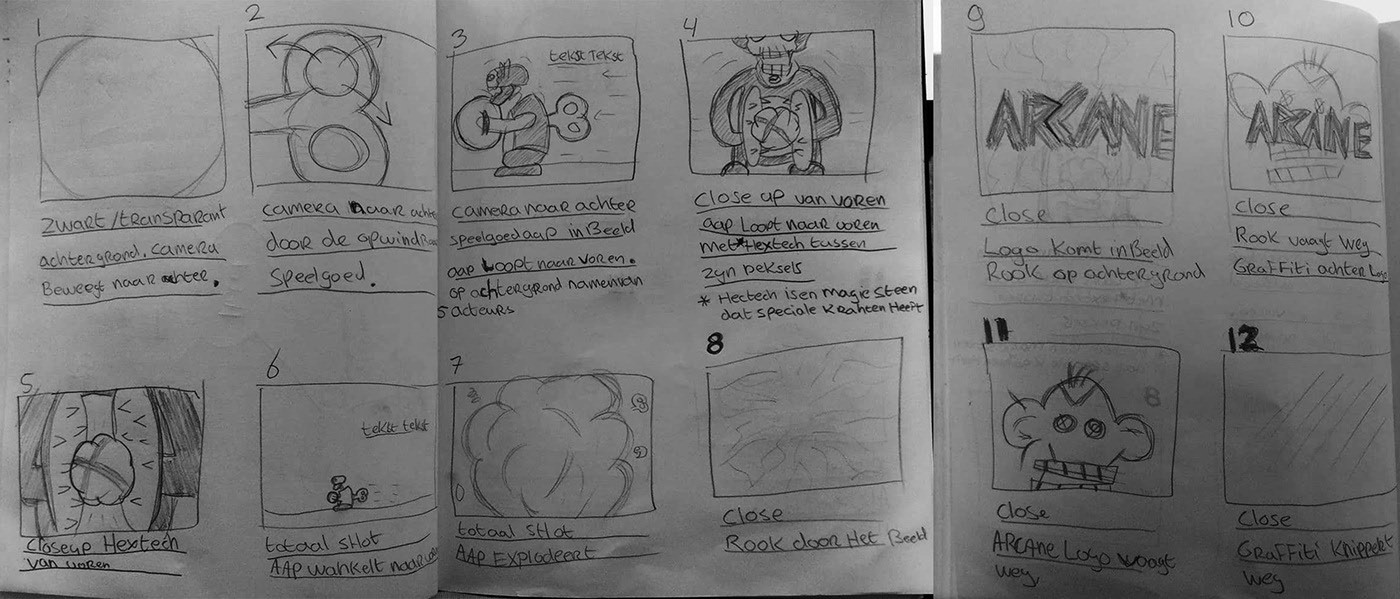 1
zwart/transparant
achtergrond. camera
Beweegt naar achter.
2
camera naar achte
door de opwind
speelgoed.
3
tekst tekst
camera naar achter
speelgoedaap in Beeld
aap Loopt naar voren.
op achtergrond namen van
5 acteurs
4
close up van voren
aap Loopt naar voren
met* Hextech tussen
zyn deksels
* Hectech is en magie steen
dat speciale Krahten Heeft
5
closeup Hextech
van voren
6
tekst tekst
totaal sHot
AAP wankelt naar
7
totaal sHot
AAP EXPLODEERT
8
close
Rook door Het Beeld
9
ARCANE
close
Logo Komt in Beeld
Rook op achtergrond
10
ARCANE
close
Rook vaagt weg
GRAFFiti achter Logo
11
close
ARCANE Logo vaagt
weg,
12
close
GRAFFiti Knippert
weg